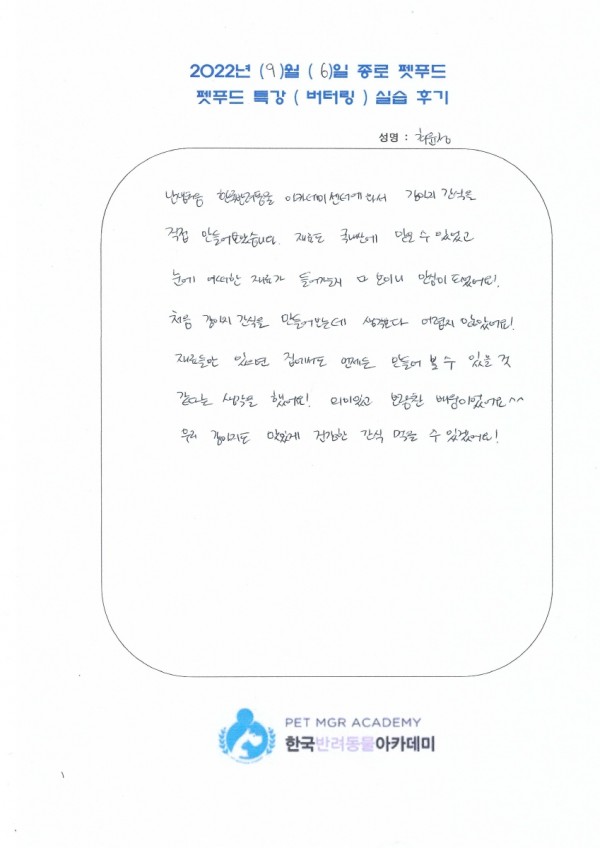 2022년 (9)월 (6)일 종로 펫푸드
펫푸드 특강 ( 버터링 ) 실습 후기
성명 : 최윤정
난생처음 한국반려동물 아카데미 센터에 와서 강아지 간식을
직접 만들어보았습니다. 재료도 국내산에 믿을 수 있었고
눈에 어떠한 재료가 들어가는지 다 보이니 안심이 되었어요!
처음 강아지 간식을 만들어보는데 생각보다 어렵지 않았어요!
재료들만 있으면 집에서도 언제든 만들어 볼 수 있을 것
같다는 생각을 했어요! 재미있고 보람찬 배움이었어요^^
우리 강아지도 맛있게 건강한 간식 먹을 수 있겠어요!
PET MGR ACADEMY
한국반려동물아카데미